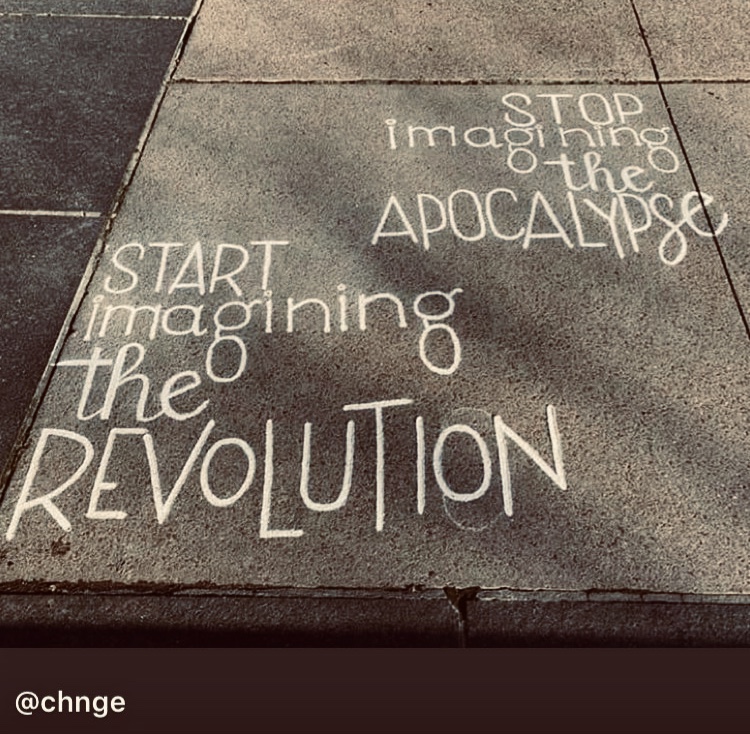 STOP
imagining
the
APOCALYPSE
START
imagining
the
REVOLUTION
@chnge